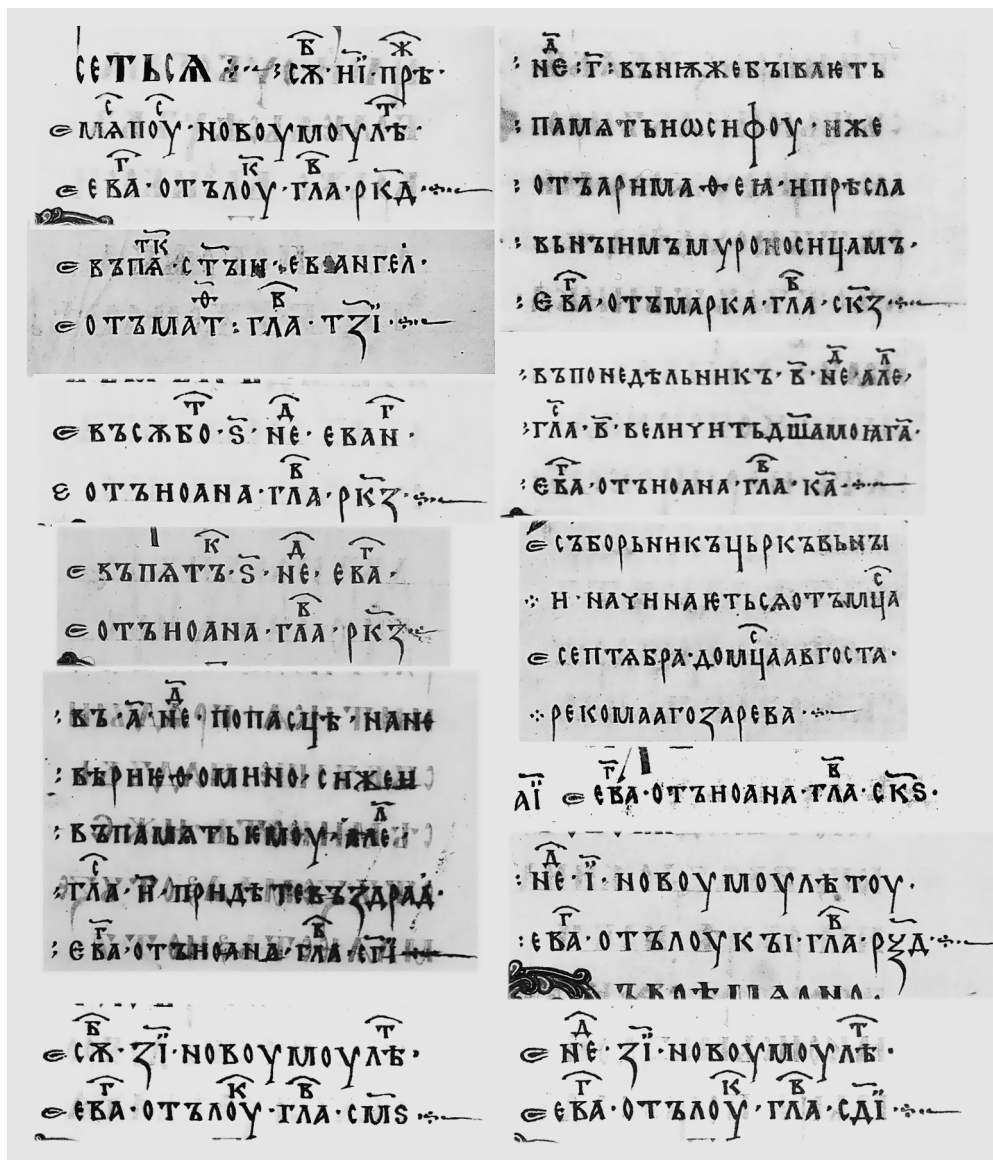 сетьсѧ ·:· сѫⷠ · н҃ї · прѣⷤ ·
мѧⷭпоⷭу · новоумоу лѣⷮ ·
еваⷢ · отълоуⷦ · глаⷡ · рк҃д ·:·
въпѧⷮⷦ · ст҃ъіи · еваангел ·
отъматⷴ : глаⷡ · тз҃ї ·:·
въсѫбоⷮ · ѕ҃ · неⷣ · еванⷢ ·
отъиоана · глаⷡ · рк҃з ·:·
въпѧтъⷦ · ѕ҃ · неⷣ · еваⷢ ·
отъиоана · глаⷡ · рк҃з ·:·
: въ · а҃ · неⷣ · попасцѣ · нане
: вѣриѥ ѳомино · сижеи
: въпамѧтьѥмоу · алеⷧ ·
: глаⷭ · и҃ · придѣтевъздрад ·
: еваⷢ · отъиоана · глаⷡ · сг҃і ·:·
сѫⷠ · з҃ї · новоумоу лѣⷮ ·
еваⷢ · отълоуⷦ · глаⷡ · см҃ѕ ·:·
: неⷣ : г҃ : въниѭжебъіваѥть
: памѧтьиѡсифоу · иже
: отъаримаѳеꙗ · ипрѣсла
: вьнъіимъмуроносицамъ ·
: еваⷢ · отъмарка · глаⷡ · ск҃з ·:·
: въпонедѣльникъ · в҃ · неⷣ · алеⷧ ·
: глаⷭ · в҃ · величитьдш҃амоꙗга ·
: еваⷢ · отъиоана · глаⷡ · к҃а ·:·
съборьникъцьркъвьнъі
·:· и · начинаѥтьсѧотъмцⷭа
септѧбра · домцⷭаавгоста ·
·:· рекомаагозарева ·:·
а҃ї еваⷢ · отъиоана · глаⷡ · ск҃ѕ ·
: неⷣ · ї҃ · новоумоулѣтоу ·
: еваⷢ · отълоукъі · глаⷡ · рѯ҃д ·:·
неⷣ · з҃ї · новоумоу лѣⷮ ·
еваⷢ · отълоуⷦ · глаⷡ · сд҃ї ·:·